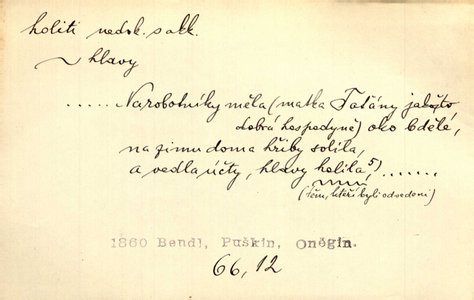 holiti nedok. s akk.
~ hlavy
..... Na robotníky měla (matka Taťány jakožto
dobrá hospodyně) oko bdělé,
na zimu doma hřiby solila,
a vedla účty, hlavy holila⁵⁾.......
(těm, kteří byli odvedeni)
1860 Bendl, Puškin, Oněgin.
66, 12